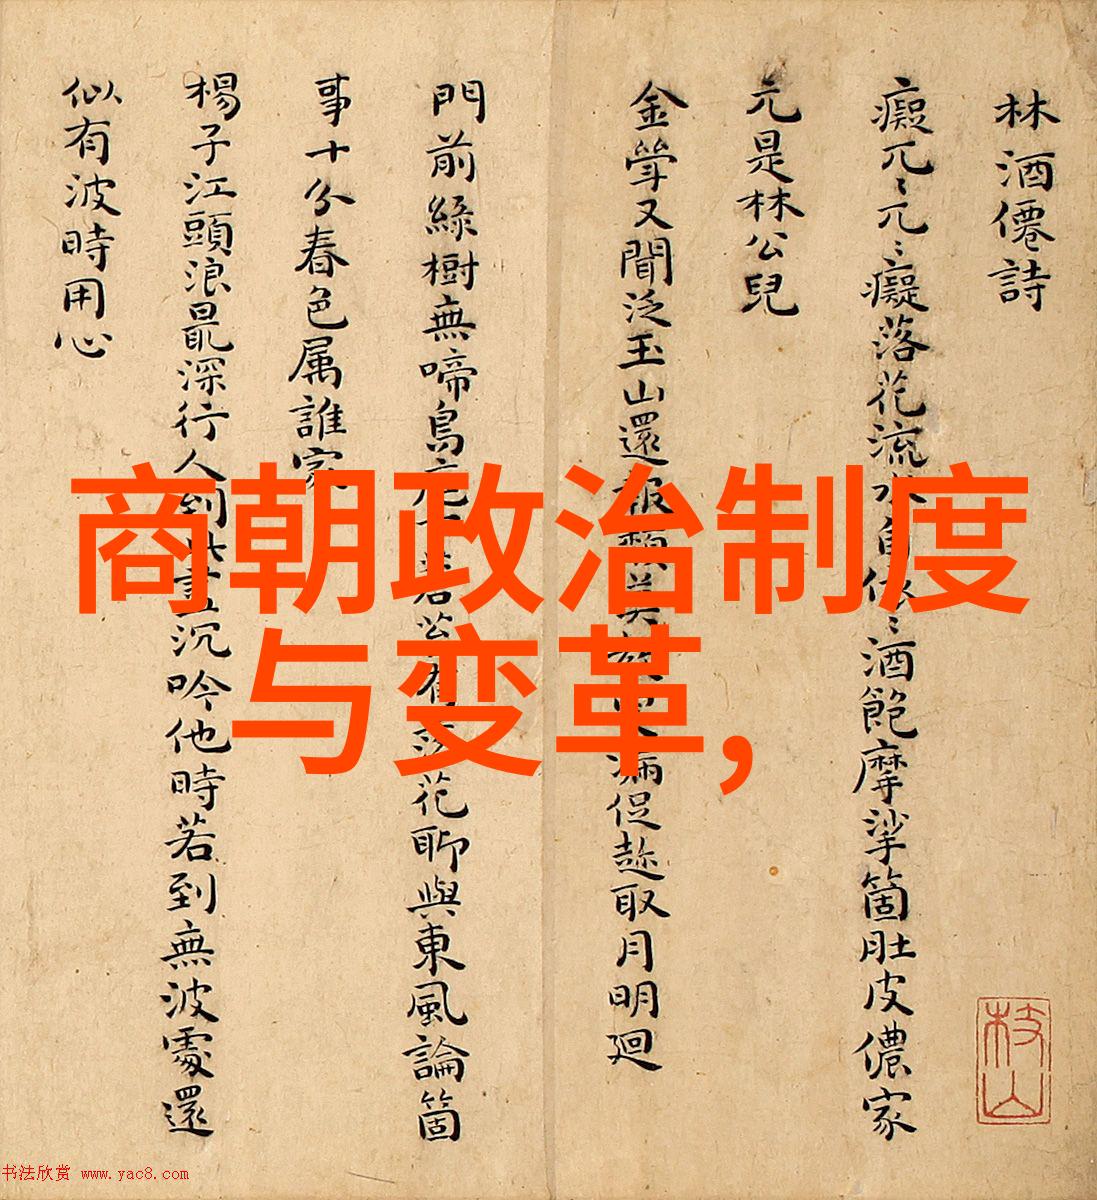 林酒僊詩
癡兀〻兀〻癡落花流水自依〻酒飽摩挲箇肚皮儂家
元是林公兒
金斝又聞泛玉山還報頹莫 漏促趂取月明廻
門前綠樹無啼鳥 庭下蒼苔有落花聊與東風論箇
事十分春色属誰家
楊子江頭浪最深行人到此盡沉吟他時若到無波處還
似有波時用心
枝山
商朝政治制度
与变革,
书法欣赏 www.yac8.com